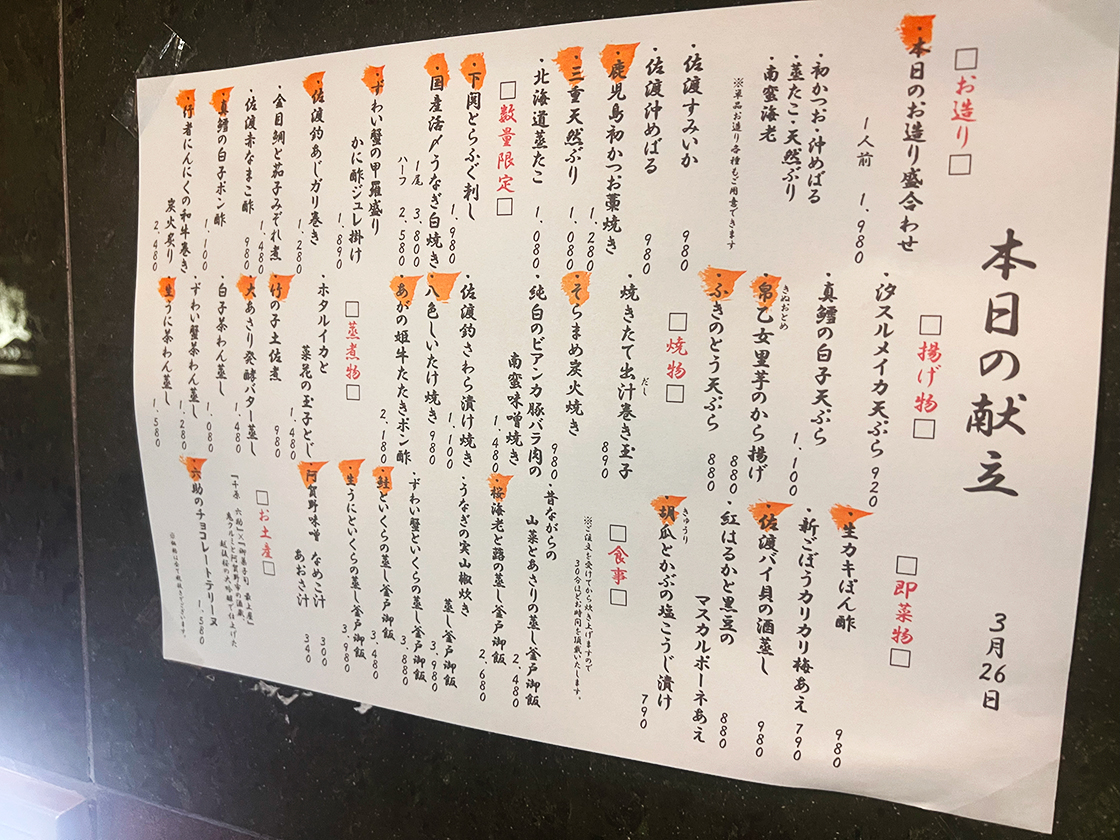 本日の献立
3月26日
□お造り□
・本日のお造り盛合わせ
1人前 1,980
・初かつお・沖めばる
・蒸たこ・天然ぶり
・南蛮海老
※単品お造り各種もご用意できます
・佐渡すみいか 980
・佐渡沖めばる 980
・鹿児島初かつお藁焼き 1,280
・三重天然ぶり 1,080
・北海道蒸たこ 1,080
□数量限定□
・下関とらふぐ刺し 1,980
・国産活〆うなぎ白焼き
1尾 3,800
ハーフ 2,580
・ずわい蟹の甲羅盛り
かに酢ジュレ掛け 1,890
・佐渡釣あじガリ巻き 1,280
・金目鯛と茄子みぞれ煮 1,480
・佐渡赤なまこ酢 980
・真鱈の白子ポン酢 1,100
・行者にんにくの和牛巻き
炭火炙り 2,480
□揚げ物□
・汐スルメイカ天ぷら 920
・真鱈の白子天ぷら 1,100
・帛乙女里芋のから揚げ 880
きぬおとめ
・ふきのとう天ぷら 880
□焼物□
・焼きたて出汁巻き玉子 890
だし
・そらまめ炭火焼き 980
・純白のビアンカ豚バラ肉の
南蛮味噌焼き 1,480
・佐渡釣さわら漬け焼き 1,100
・八色しいたけ焼き 980
・あがの姫牛たたきポン酢 2,180
□蒸煮物□
・ホタルイカと
菜花の玉子とじ 1,480
・竹の子土佐煮 980
・大あさり発酵バター蒸し 1,480
・白子茶わん蒸し 1,080
・ずわい蟹茶わん蒸し 1,280
・生うに茶わん蒸し 1,580
□即菜物□
・生カキぽん酢 980
・新ごぼうカリカリ梅あえ 790
・佐渡バイ貝の酒蒸し 980
・紅はるかと黒豆の
マスカルポーネあえ 880
・胡瓜とかぶの塩こうじ漬け 790
きゅうり
□食事□
※ご注文を受けてから炊き上げますので
30分ほどお時間を頂戴いたします。
・昔ながらの
山菜とあさりの蒸し釜戸御飯 2,480
・桜海老と蕗の蒸し釜戸御飯 2,680
・うなぎの実山椒炊き
蒸し釜戸御飯 3,980
・ずわい蟹といくらの蒸し釜戸御飯 3,880
・鮭といくらの蒸し釜戸御飯 3,480
・生うにといくらの蒸し釜戸御飯 3,980
・阿賀野味噌 なめこ汁 300
あおさ汁 340
□お土産□
・六助のチョコレートテリーヌ 1,580